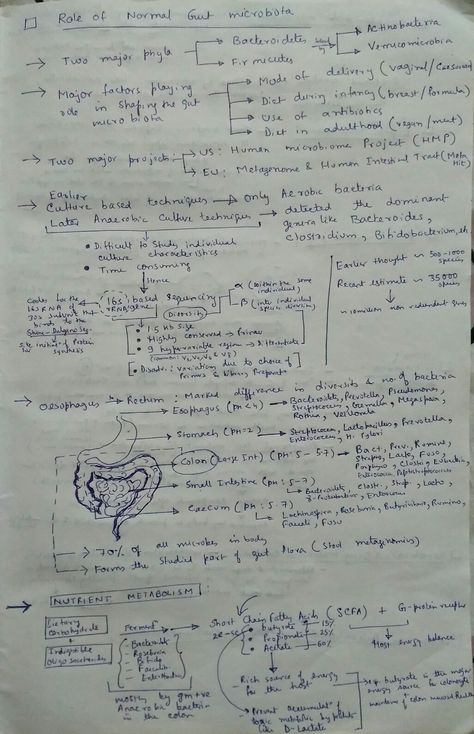 Role of Normal Gut microbiota
→ Two major phyla → Bacteroidetes → Actinobacteria
→ Verrucomicrobia
→ Firmicutes
→ Major factors playing role in shaping the gut microbiota
→ Mode of delivery (vaginal/Caesarean)
→ Diet during infancy (breast/formula)
→ Use of antibiotics
→ Diet in adulthood (vegan/meat)
→ Two major projects → US: Human microbiome Project (HMP)
→ EU: Metagenome & Human Intestinal Tract (Meta Hit)
→ Earlier
Culture based techniques → only Aerobic bacteria
Later Anaerobic Culture techniques → detected the dominant
genera like Bacteroides,
Clostridium, Bifidobacterium, etc
• Difficult to Study individual
culture characteristics
• Time consuming
Hence
Earlier thought ~ 500-1000
species
Recent estimate ~ 35000
species
~ 10 million non redundant genes
16s based sequencing
rRNA gene
Diversity
α (within the same
individual)
β (inter individual
species diversity)
Codes for the
16s RNA of
30s subunit that
binds to the
Shine-Dalgarno Seq.
of Protein
synthesis
• 1.5 kb size
• Highly conserved → Primer
• 9 hypervariable region → Differentiate
• Disadv: variations due to choice of
Primers & Library Preparation
→ Oesophagus → Rectum: Marked difference in diversity & no. of bacteria
→ Esophagus (pH <4) → Bacteroides, Prevotella, Pseudomonas,
Streptococcus, Gemella, Megaspaera,
Rothia, Veillonella
→ Stomach (pH=2) → Streptococcus, Lactobacillus, Prevotella,
Enterococcus, H. Pylori
→ Colon (Large Int) (pH: 5-5.7) → Bact, Prev, Rumino,
Strepto, Lacto, Fuso,
Porphyro, Clostri, Eubacteria,
Enterococcus, Peptostreptococcus
→ Small Intestine (pH: 5-7)
→ Bacteroidetes, Clostr, Strep, Lacto,
γ-Proteobacteria, Enterococcus
→ Caecum (pH: 5.7)
→ Lachnospira, Roseburia, Butyrivibrio, Rumino,
Faecali, Fuso
→ 70% of all microbes in body
→ Forms the studied part of gut flora (stool metagenomics)
→ NUTRIENT METABOLISM:
Dietary
Carbohydrate
+
Indigestible
Oligosaccharides
Ferment →
- Bacteroides
- Roseburia
- Bifido
- Faecali
- Enterobacteria
mostly by gm+ve
Anaerobic bacteria
in the colon
Short Chain Fatty Acids (SCFA) + G-protein receptor
• Butyrate → 15%
• Propionate → 25%
• Acetate → 60%
Host energy balance
- Rich source of energy
for the host
- Prevent accumulatn of
toxic metabolic by products
like D-Lactate
butyrate is the major
energy source for colonocyte